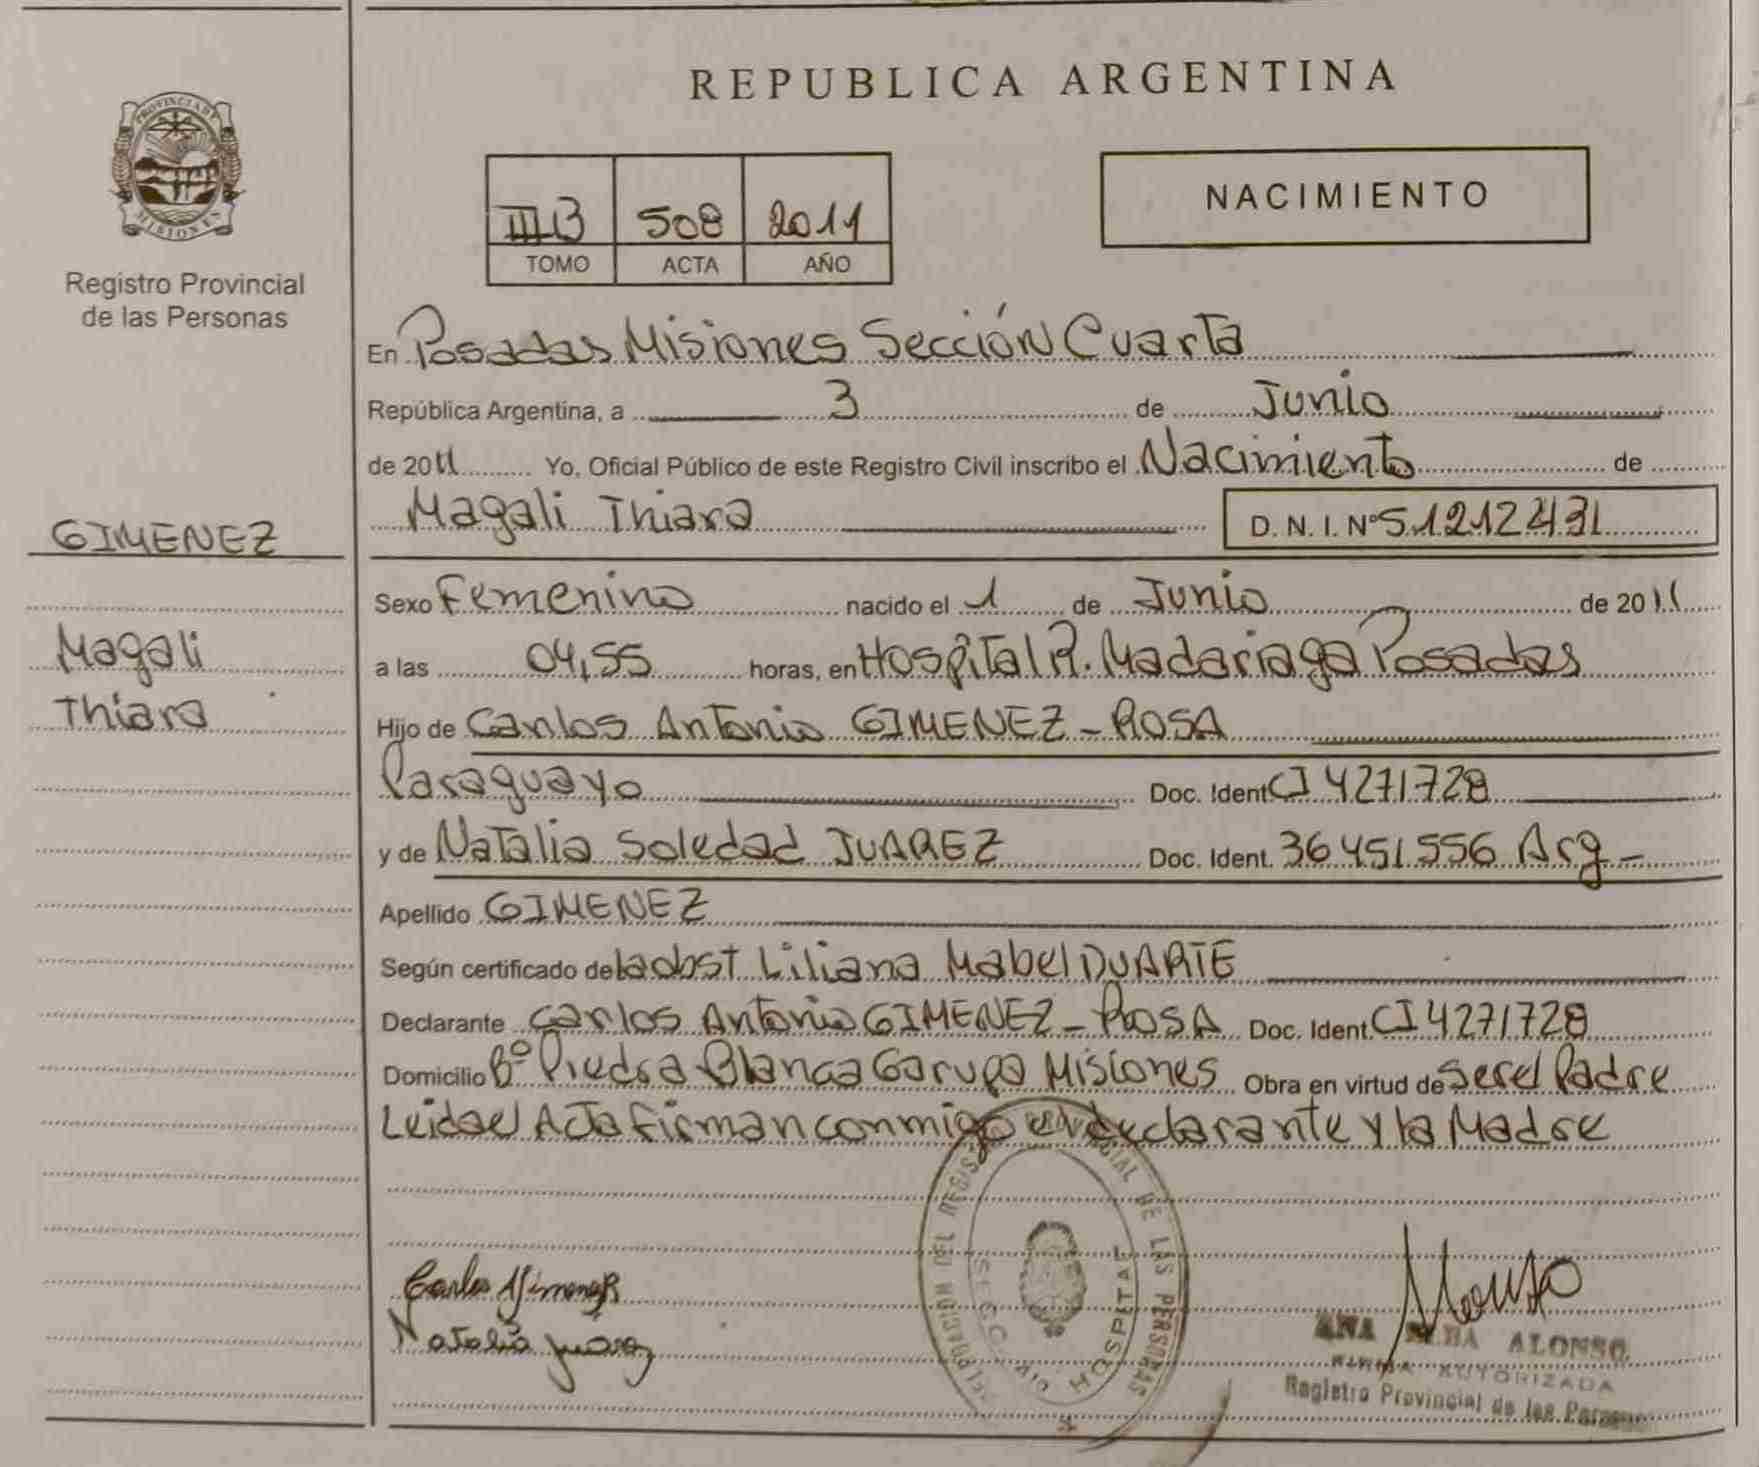 REPUBLICA ARGENTINA
PROVINCIA DE
MISIONES
Registro Provincial
de las Personas
IIIB 508 2011
TOMO ACTA AÑO
NACIMIENTO
En Posadas Misiones Sección Cuarta
República Argentina, a 3 de Junio
de 2011 Yo, Oficial Público de este Registro Civil inscribo el Nacimiento de
Magali Thiara D. N. I. Nº 51212431
GIMENEZ
Magali
Thiara
Sexo Femenino nacido el 1 de Junio de 2011
a las 04,55 horas, en Hospital R. Madariaga Posadas
Hijo de Carlos Antonio GIMENEZ - ROSA
Paraguayo Doc. Ident CI 4271728
y de Natalia Soledad JUAREZ Doc. Ident. 36451556 Arg -
Apellido GIMENEZ
Según certificado de la obst Liliana Mabel DUARTE
Declarante Carlos Antonio GIMENEZ - ROSA Doc. Ident. CI 4271728
Domicilio Bº Piedra Blanca Garupa Misiones Obra en virtud de ser el Padre
Leida el Acta firman conmigo el declarante y la Madre
Carlos Gimenez
Natalia Juarez
LAS PERSONAS
HOSPITAL
ANA ALBA ALONSO
FIRMA AUTORIZADA
Registro Provincial de las Personas